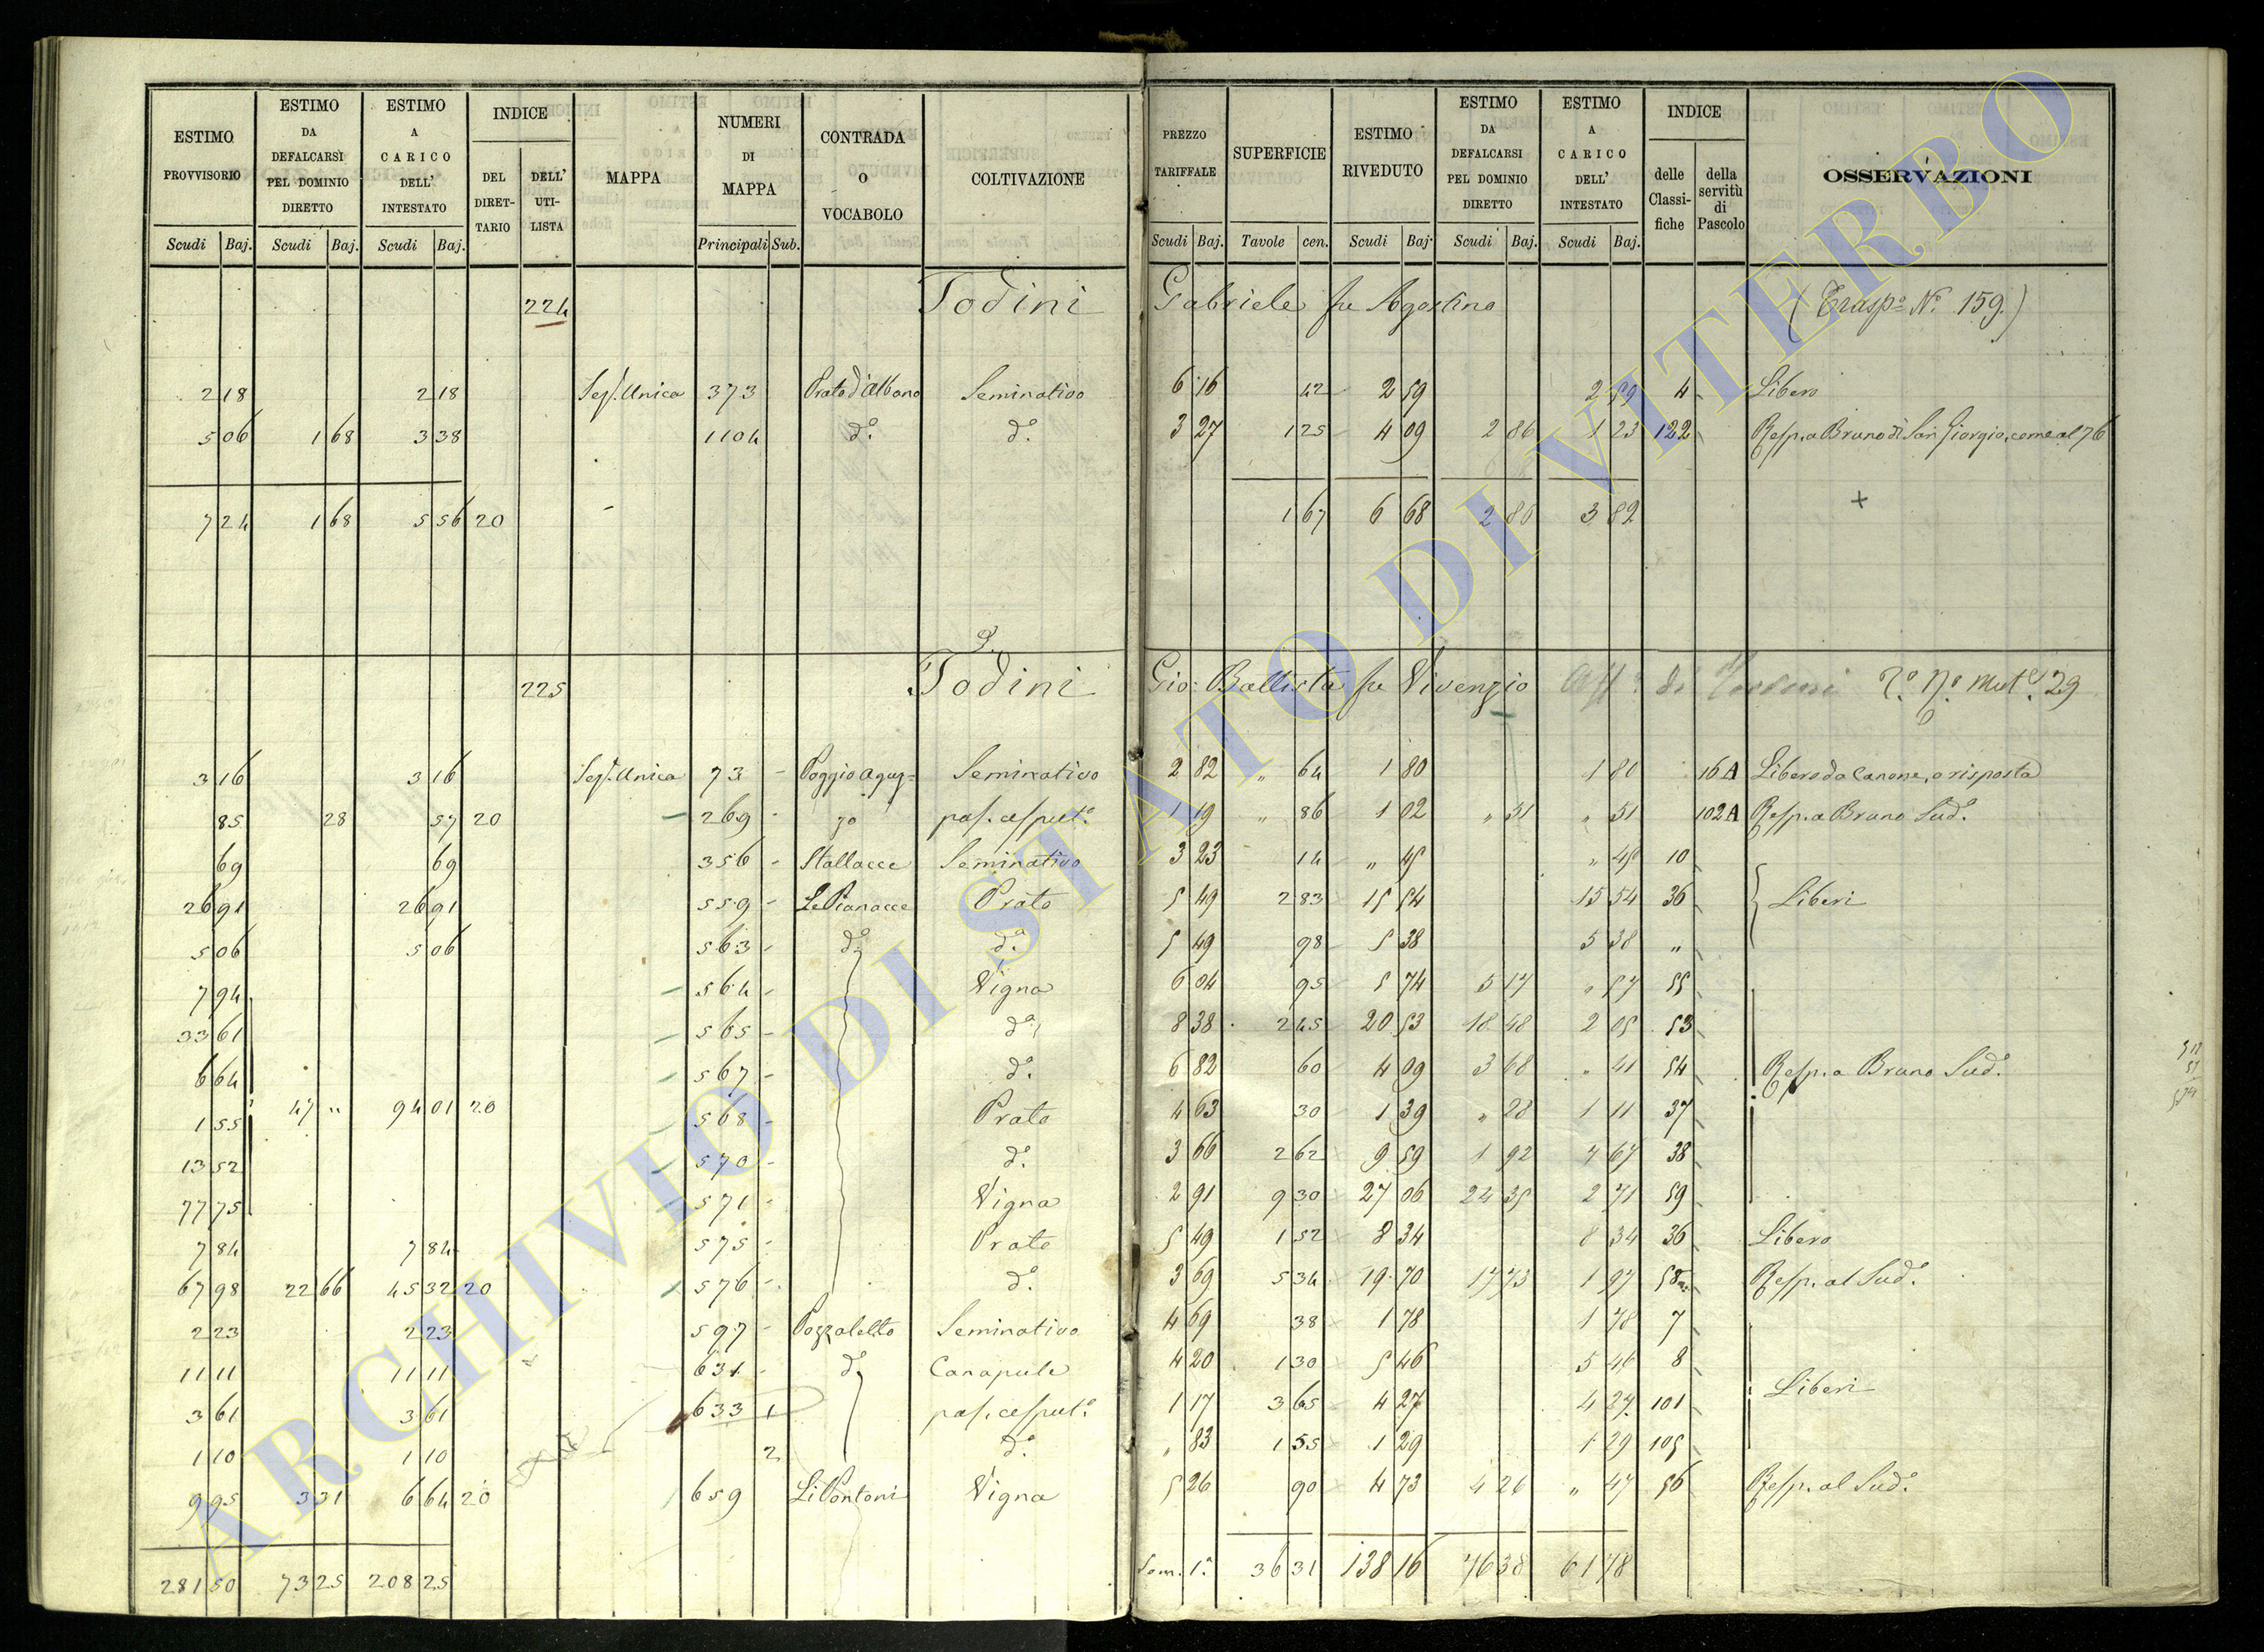 ESTIMO PROVVISORIO | ESTIMO DA DEFALCARSI PEL DOMINIO DIRETTO | ESTIMO A CARICO DELL' INTESTATO | INDICE | MAPPA | NUMERI DI MAPPA | CONTRADA O VOCABOLO | COLTIVAZIONE | PREZZO TARIFFALE | SUPERFICIE | ESTIMO RIVEDUTO | ESTIMO DA DEFALCARSI PEL DOMINIO DIRETTO | ESTIMO A CARICO DELL' INTESTATO | INDICE | OSSERVAZIONI
DEL DIRETTARIO | DELL' UTILISTA | delle Classifiche | della servitù di Pascolo
Scudi Baj. | Scudi Baj. | Scudi Baj. | Principali Sub. | Scudi Baj. | Tavole cen. | Scudi Baj. | Scudi Baj. | Scudi Baj.
224 Todini Gabriele fu Agostino (Trasp.o N.o 159.)
2 18 | 2 18 | Sez. Unica | 373 | Prato d'Albano | Seminativo | 6 16 | 42 | 2 59 | 2 59 | 4 | Libero
5 06 | 1 68 | 3 38 | 1104 | d.o | d.o | 3 27 | 1 25 | 4 09 | 2 86 | 1 23 | 122 | Resp. a Bruno di San Giorgio, come al 76
7 24 | 1 68 | 5 56 | 20 | 1 67 | 6 68 | 2 86 | 3 82 | +
225 Todini Gio: Battista fu Vivenzio 29
3 16 | 3 16 | Sez. Unica | 73 | Poggio aguz= | Seminativo | 2 82 | " 64 | 1 80 | 1 80 | 16A | Libero da Canone, o risposta
85 | 28 | 57 | 20 | 269 | zo | pas. cesput.o | 1 19 | " 86 | 1 02 | " 51 | " 51 | 102A | Resp. a Bruno Sud.o
69 | 69 | 356 | Stallacce | Seminativo | 3 23 | 14 | " 45 | " 45 | 10
26 91 | 26 91 | 559 | Le Pianacce | Prato | 5 49 | 2 83 | 15 54 | 15 54 | 36 | Liberi
5 06 | 5 06 | 563 | d.o | d.o | 5 49 | 98 | 5 38 | 5 38 | "
7 94 | 564 | Vigna | 6 04 | 95 | 5 74 | 5 17 | " 57 | 55
33 61 | 565 | d.o | 8 38 | 2 45 | 20 53 | 18 48 | 2 05 | 53
6 64 | 567 | d.o | 6 82 | 60 | 4 09 | 3 68 | " 41 | 54 | Resp. a Bruno Sud.o
1 55 | 47 " | 94 01 | 20 | 568 | Prato | 4 63 | 30 | 1 39 | " 28 | 1 11 | 37
13 52 | 570 | d.o | 3 66 | 2 62 | 9 59 | 1 92 | 7 67 | 38
77 75 | 571 | Vigna | 2 91 | 9 30 | 27 06 | 24 35 | 2 71 | 59
7 84 | 7 84 | 575 | Prato | 5 49 | 1 52 | 8 34 | 8 34 | 36 | Libero
67 98 | 22 66 | 45 32 | 20 | 576 | d.o | 3 69 | 5 34 | 19 70 | 17 73 | 1 97 | 58 | Resp. al Sud.o
2 23 | 2 23 | 597 | Pozzaletto | Seminativo | 4 69 | 38 | 1 78 | 1 78 | 7
11 11 | 11 11 | 631 | d.o | Canapule | 4 20 | 1 30 | 5 46 | 5 46 | 8 | Liberi
3 61 | 3 61 | 633 1 | pas. cesput.o | 1 17 | 3 65 | 4 27 | 4 27 | 101
1 10 | 1 10 | 2 | d.o | " 83 | 1 55 | 1 29 | 1 29 | 105
9 95 | 3 31 | 6 64 | 20 | 659 | Li Pontoni | Vigna | 5 26 | 90 | 4 73 | 4 26 | " 47 | 56 | Resp. al Sud.o
281 50 | 73 25 | 208 25 | Som. 1.a | 36 31 | 138 16 | 76 38 | 61 78
ARCHIVIO DI STATO DI VITERBO